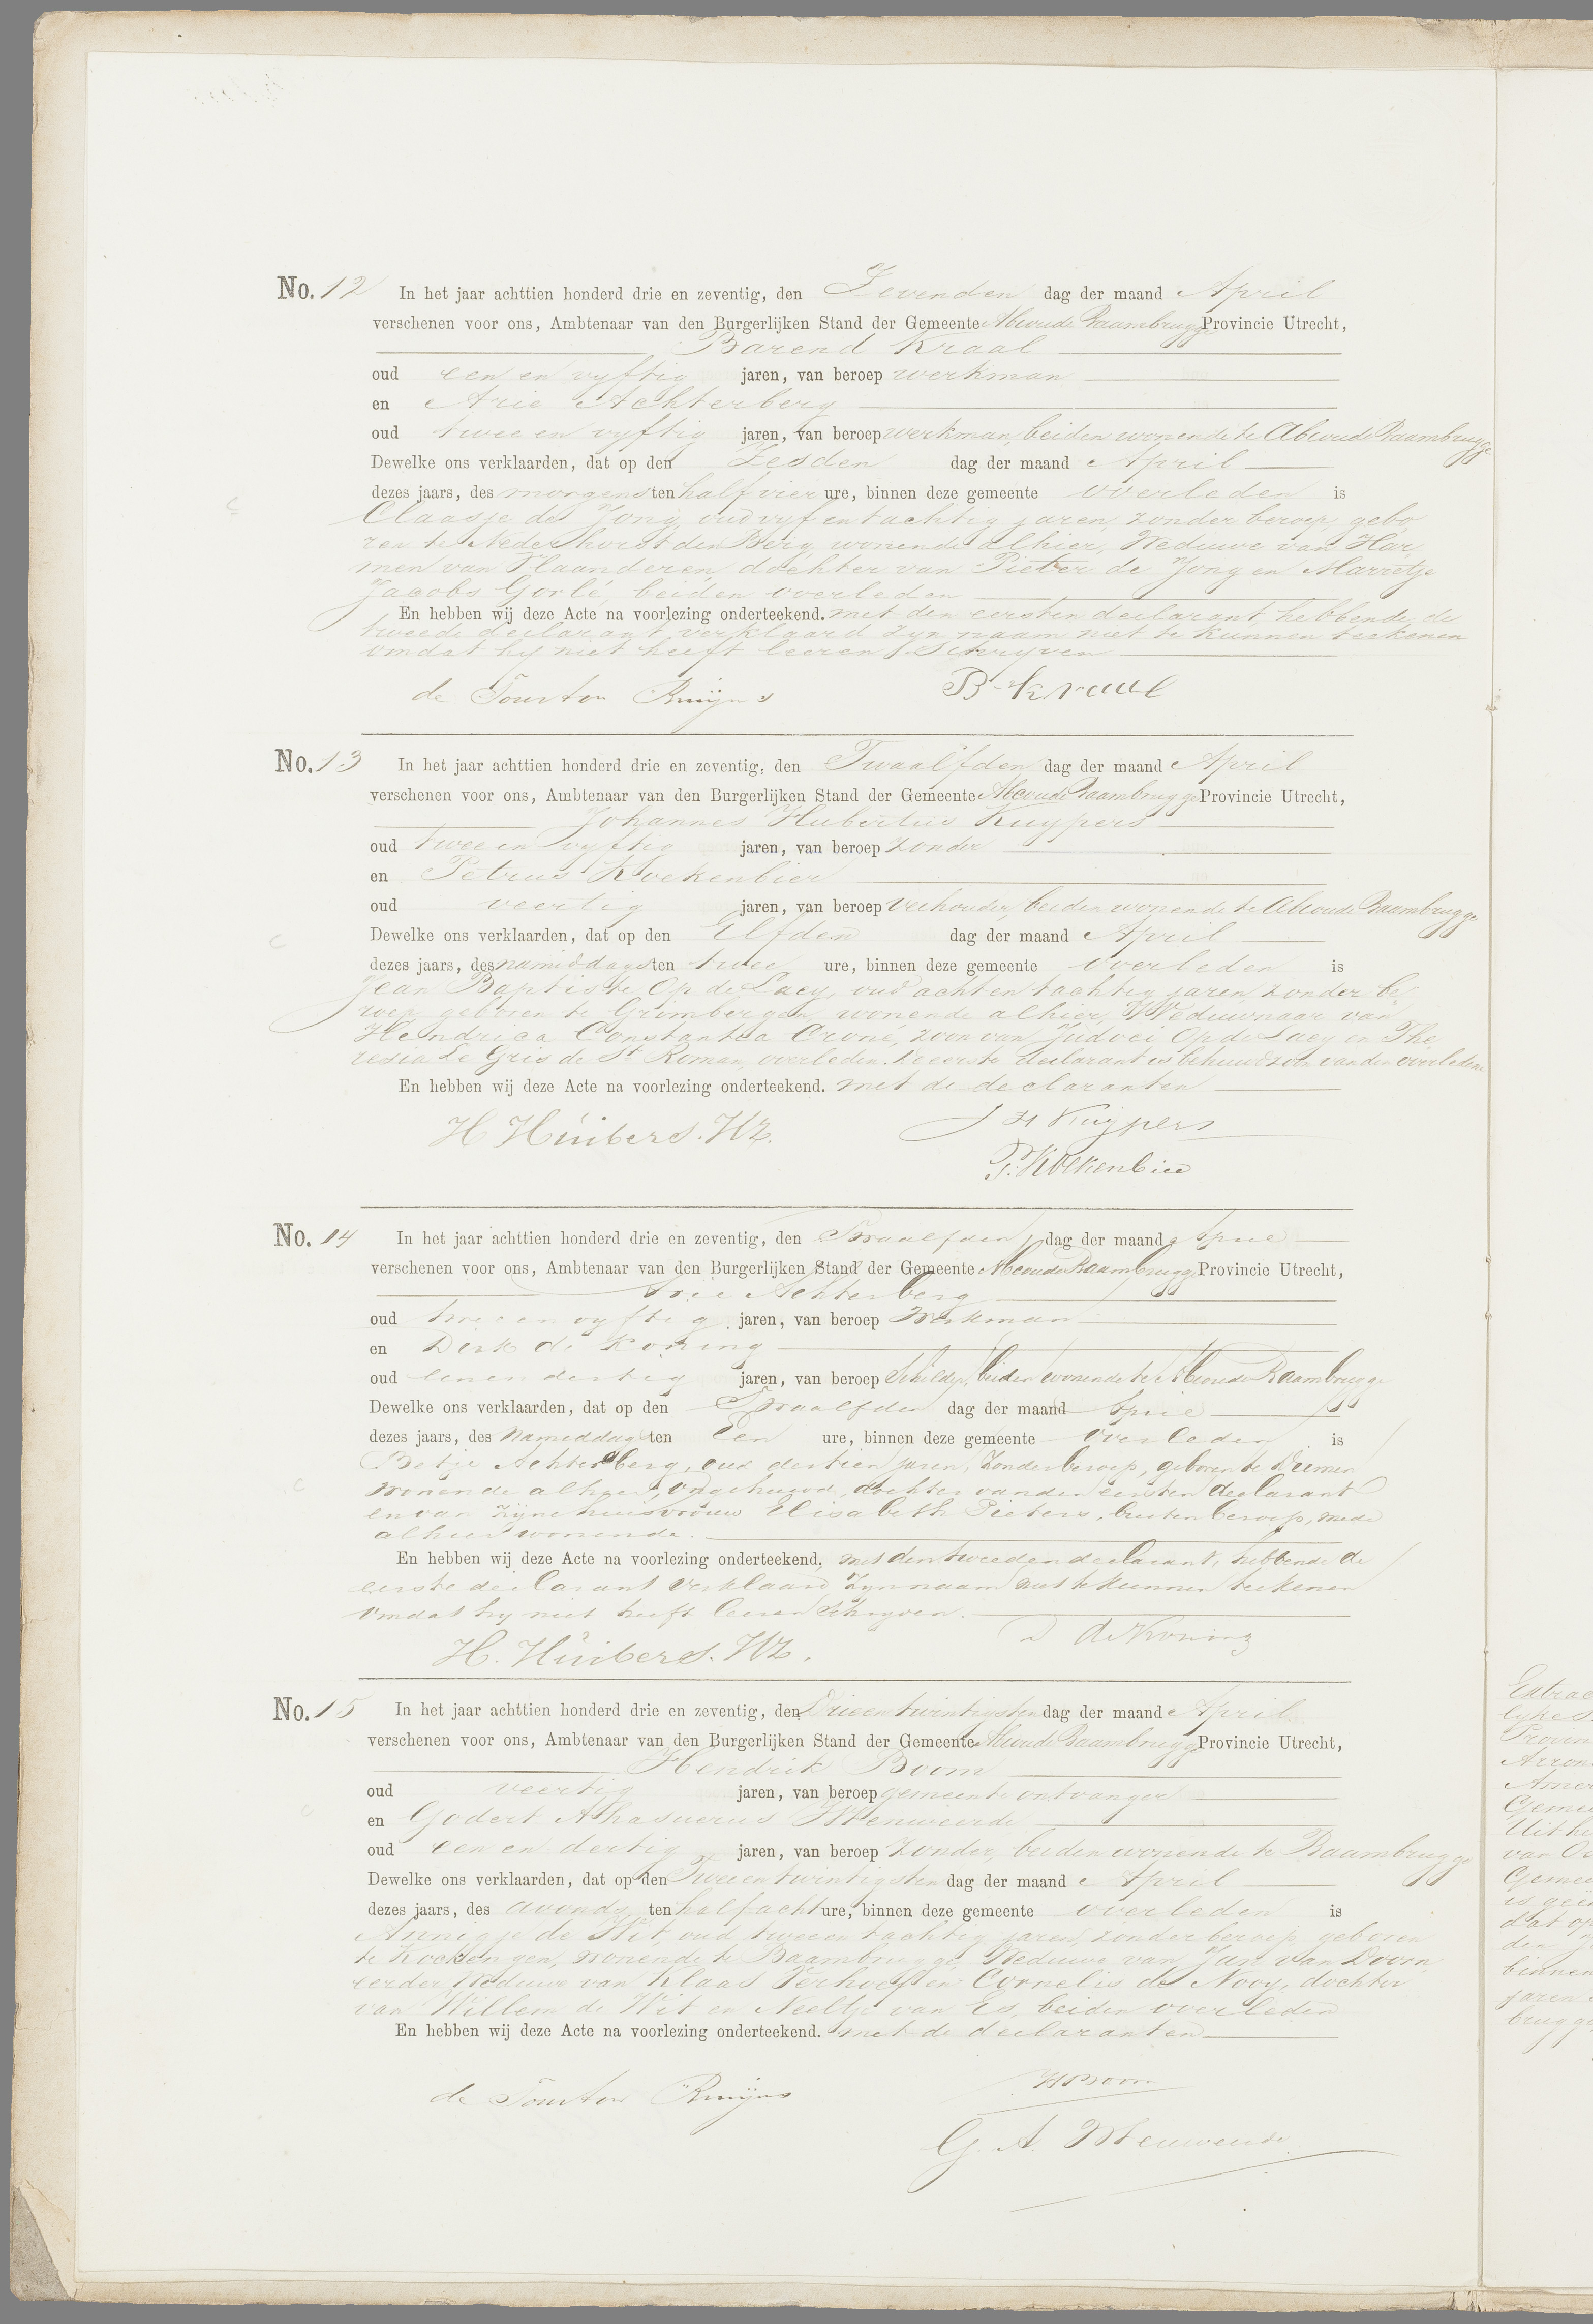 No. 12 In het jaar achttien honderd drie en zeventig, den Zevenden dag der maand April
verschenen voor ons, Ambtenaar van den Burgerlijken Stand der Gemeente Abcoude Baambrugge Provincie Utrecht,
Barend Kraal
oud een en vyftig jaren, van beroep werkman
en Arie Achterberg
oud twee en vyftig jaren, van beroep werkman, beiden wonende te Abcoude Baambrugge
Dewelke ons verklaarden, dat op den Zesden dag der maand April
dezes jaars, des morgens ten half vier ure, binnen deze gemeente overleden is
Claasje de Jong, oud vyf en tachtig jaren, zonder beroep, gebo
ren te Nederhorst den Berg, wonende alhier, Weduwe van Har
men van Vlaanderen, dochter van Pieter de Jong en Marretje
Jacobs Gorlé, beiden overleden
En hebben wij deze Acte na voorlezing onderteekend. met den eersten declarant, hebbende de
tweede declarant verklaard zyn naam niet te kunnen teekenen
omdat hy niet heeft leeren schryven
de Tourton Bruijns B-Kraal
No. 13 In het jaar achttien honderd drie en zeventig, den Twaalfden dag der maand April
verschenen voor ons, Ambtenaar van den Burgerlijken Stand der Gemeente Abcoude Baambrugge Provincie Utrecht,
Johannes Hubertus Kuypers
oud twee en vyftig jaren, van beroep zonder
en Petrus Kloekenbier
oud veertig jaren, van beroep veehouder, beiden wonende te Abcoude Baambrugge
Dewelke ons verklaarden, dat op den Elfden dag der maand April
dezes jaars, des namiddags ten twee ure, binnen deze gemeente overleden is
Jean Baptiste Op de Lacy, oud acht en tachtig jaren, zonder be
roep, geboren te Grimbergen, wonende alhier, Weduwnaar van
Hendrica Constantia Croné, zoon van Judoci Op de Lacy en The
resia Le Gris de St Roman, overleden. De eerste declarant is behuwdzoon van den overledene
En hebben wij deze Acte na voorlezing onderteekend. met de declaranten
H Huibers. Hz. J H Kuypers
P. Kloekenbier
No. 14 In het jaar achttien honderd drie en zeventig, den Twaalfden dag der maand April
verschenen voor ons, Ambtenaar van den Burgerlijken Stand der Gemeente Abcoude Baambrugge Provincie Utrecht,
Arie Achterberg
oud twee en vyftig jaren, van beroep Werkman
en Dirk de Koning
oud een en dertig jaren, van beroep Schilder, beiden wonende te Abcoude Baambrugge
Dewelke ons verklaarden, dat op den Twaalfden dag der maand April
dezes jaars, des Namiddags ten Een ure, binnen deze gemeente overleden is
Betje Achterberg, oud dertien jaren, Zonder beroep, geboren te Diemen
wonende alhier, ongehuwd, dochter van den eersten declarant
en van zyne huisvrouw Elisabeth Pieters, buiten beroep, mede
alhier wonende.
En hebben wij deze Acte na voorlezing onderteekend. met den tweeden declarant, hebbende de
eerste declarant verklaard zyn naam niet te kunnen teekenen
omdat hy niet heeft leeren schryven.
H. Huibers. Hz. D de Koning
No. 15 In het jaar achttien honderd drie en zeventig, den Drie en twintigsten dag der maand April
verschenen voor ons, Ambtenaar van den Burgerlijken Stand der Gemeente Abcoude Baambrugge Provincie Utrecht,
Hendrik Boom
oud veertig jaren, van beroep gemeente ontvanger
en Godert Ahasuerus
oud een en dertig jaren, van beroep zonder, beiden wonende te Baambrugge
Dewelke ons verklaarden, dat op den Twee en twintigsten dag der maand April
dezes jaars, des avonds ten half acht ure, binnen deze gemeente overleden is
Annigje de Wit, oud twee en tachtig jaren, zonder beroep, geboren
te Kockengen, wonende te Baambrugge, Weduwe van Jan van Doorn,
eerder Weduwe van Klaas Verhoef en Cornelis de Nooy, dochter
van Willem de Wit en Neeltje van Es, beiden overleden
En hebben wij deze Acte na voorlezing onderteekend. met de declaranten
de Tourton Bruijns H Boom
G. A.